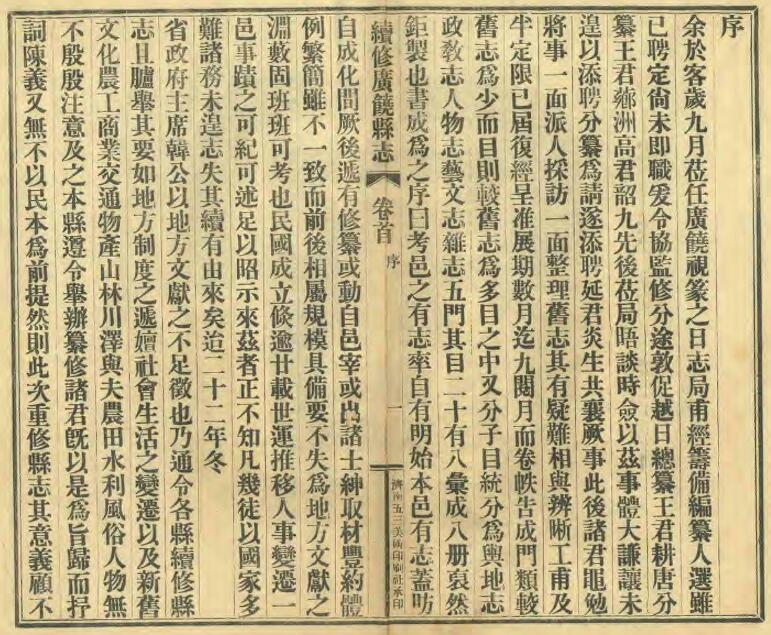 序
余於客歲九月莅任廣饒視篆之日志局甫經籌備編纂人選雖
已聘定尙未卽職爰令協監修分途敦促越日總纂王君耕唐分
纂王君薌洲高君韶九先後莅局晤談時僉以茲事體大謙讓未
遑以添聘分纂爲請遂添聘延君炎生共襄厥事此後諸君黽勉
將事一面派人採訪一面整理舊志其有疑難相與辨晰工甫及
半定限已屆復經呈准展期數月迄九閱月而卷帙告成門類較
舊志爲少而目則較舊志爲多目之中又分子目統分爲輿地志
政敎志人物志藝文志雜志五門其目二十有八彙成八册裒然
鉅製也書成爲之序曰考邑之有志率自有明始本邑有志蓋昉
續修廣饒縣志
卷首
序
一
濟南五三美術印刷社承印
自成化間厥後遞有修纂或動自邑宰或出諸士紳取材豐約體
例繁簡雖不一致而前後相屬規模具備要不失爲地方文獻之
淵藪固班班可考也民國成立倐逾廿載世運推移人事變遷一
邑事蹟之可紀可述足以昭示來茲者正不知凡幾徒以國家多
難諸務未遑志失其續有由來矣迨二十二年冬
省政府主席韓公以地方文獻之不足徵也乃通令各縣續修縣
志且臚舉其要如地方制度之遞嬗社會生活之變遷以及新舊
文化農工商業交通物產山林川澤與夫農田水利風俗人物無
不殷殷注意及之本縣遵令舉辦纂修諸君旣以是爲旨歸而抒
詞陳義又無不以民本爲前提然則此次重修縣志其意義顧不